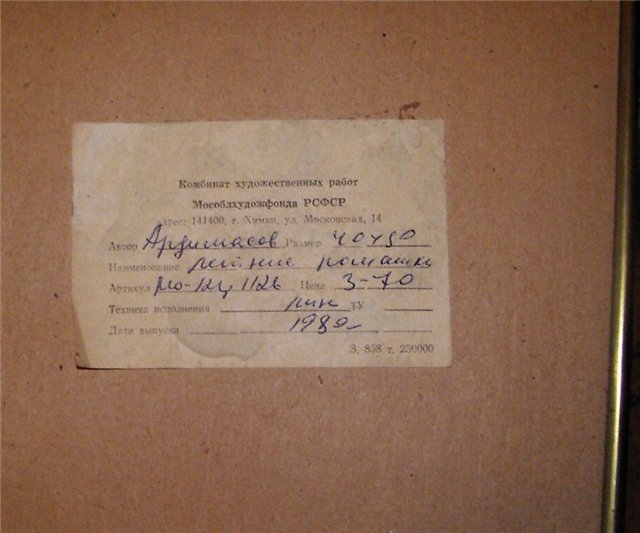 Комбинат художественных работ
Мособлхудожфонда РСФСР
адрес: 141400, г. Химки, ул. Московская, 14
Автор Ардимасов Размер 40×50
Наименование летние ромашки
Артикул Цена 3-70
Техника исполнения ТУ
Дата выпуска 1989
З. 858 т. 250000